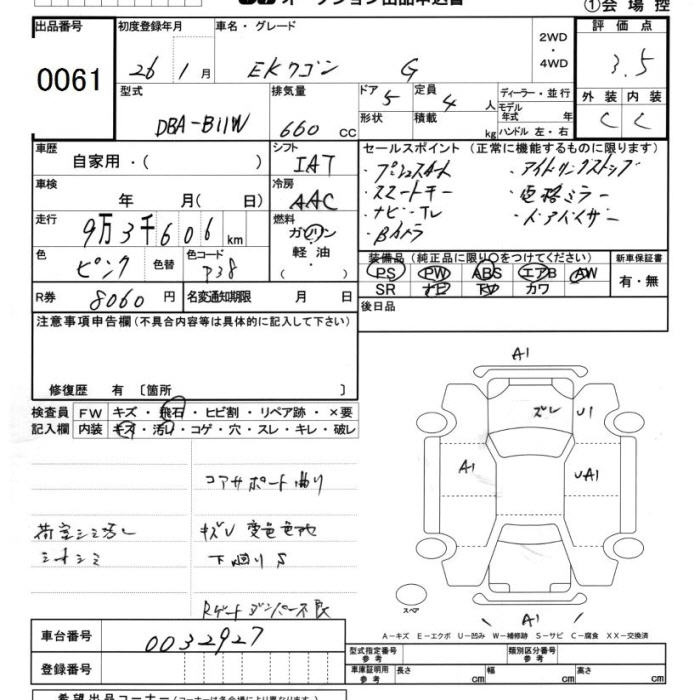 オークション出品申込書
①会場控
出品番号
0061
初度登録年月
26 1月
車名・グレード
EKワゴン G
2WD・4WD
評価点
3.5
型式
DBA-B11W
排気量
660 CC
ドア 5
形状
定員 4 人
積載 kg
ディーラー・並行
モデル年式 年
ハンドル 左・右
外装 内装
C C
車歴
自家用・( )
シフト
IAT
セールスポイント(正常に機能するものに限ります)
・プッシュスタート ・アイドリングストップ
・スマートキー ・電格ミラー
・ナビ・TV ・ドアバイザー
・Bカメラ
車検
年 月( 日)
冷房
AAC
走行
9万3千606km
燃料
ガソリン
軽油
( )
色
ピンク
色替
色コード
P38
装備品(純正品に限り○をつけてください)
PS PW ABS エアB AW
SR ナビ TV カワ
新車保証書
有・無
R券 8060円
名変通知期限 月 日
後日品
注意事項申告欄(不具合内容等は具体的に記入して下さい)
修復歴 有〔箇所 〕
検査員記入欄
FW キズ・飛石・ヒビ割・リペア跡・×要
内装 キズ・汚れ・コゲ・穴・スレ・キレ・破レ
コアサポート曲り
荷室シミ汚レ キズU 変色色地
シートシミ 下廻りS
Rゲートダンパー不良
A1
ズレ U1
A1 UA1
スペア
A1
A－キズ E－エクボ U－凹み W－補修跡 S－サビ C－腐食 XX－交換済
車台番号 0032927
登録番号
型式指定番号 参考
類別区分番号 参考
車庫証明用 参考 長さ cm 幅 cm 高さ cm
希望出品コーナー(コーナーは各会場により異なります)